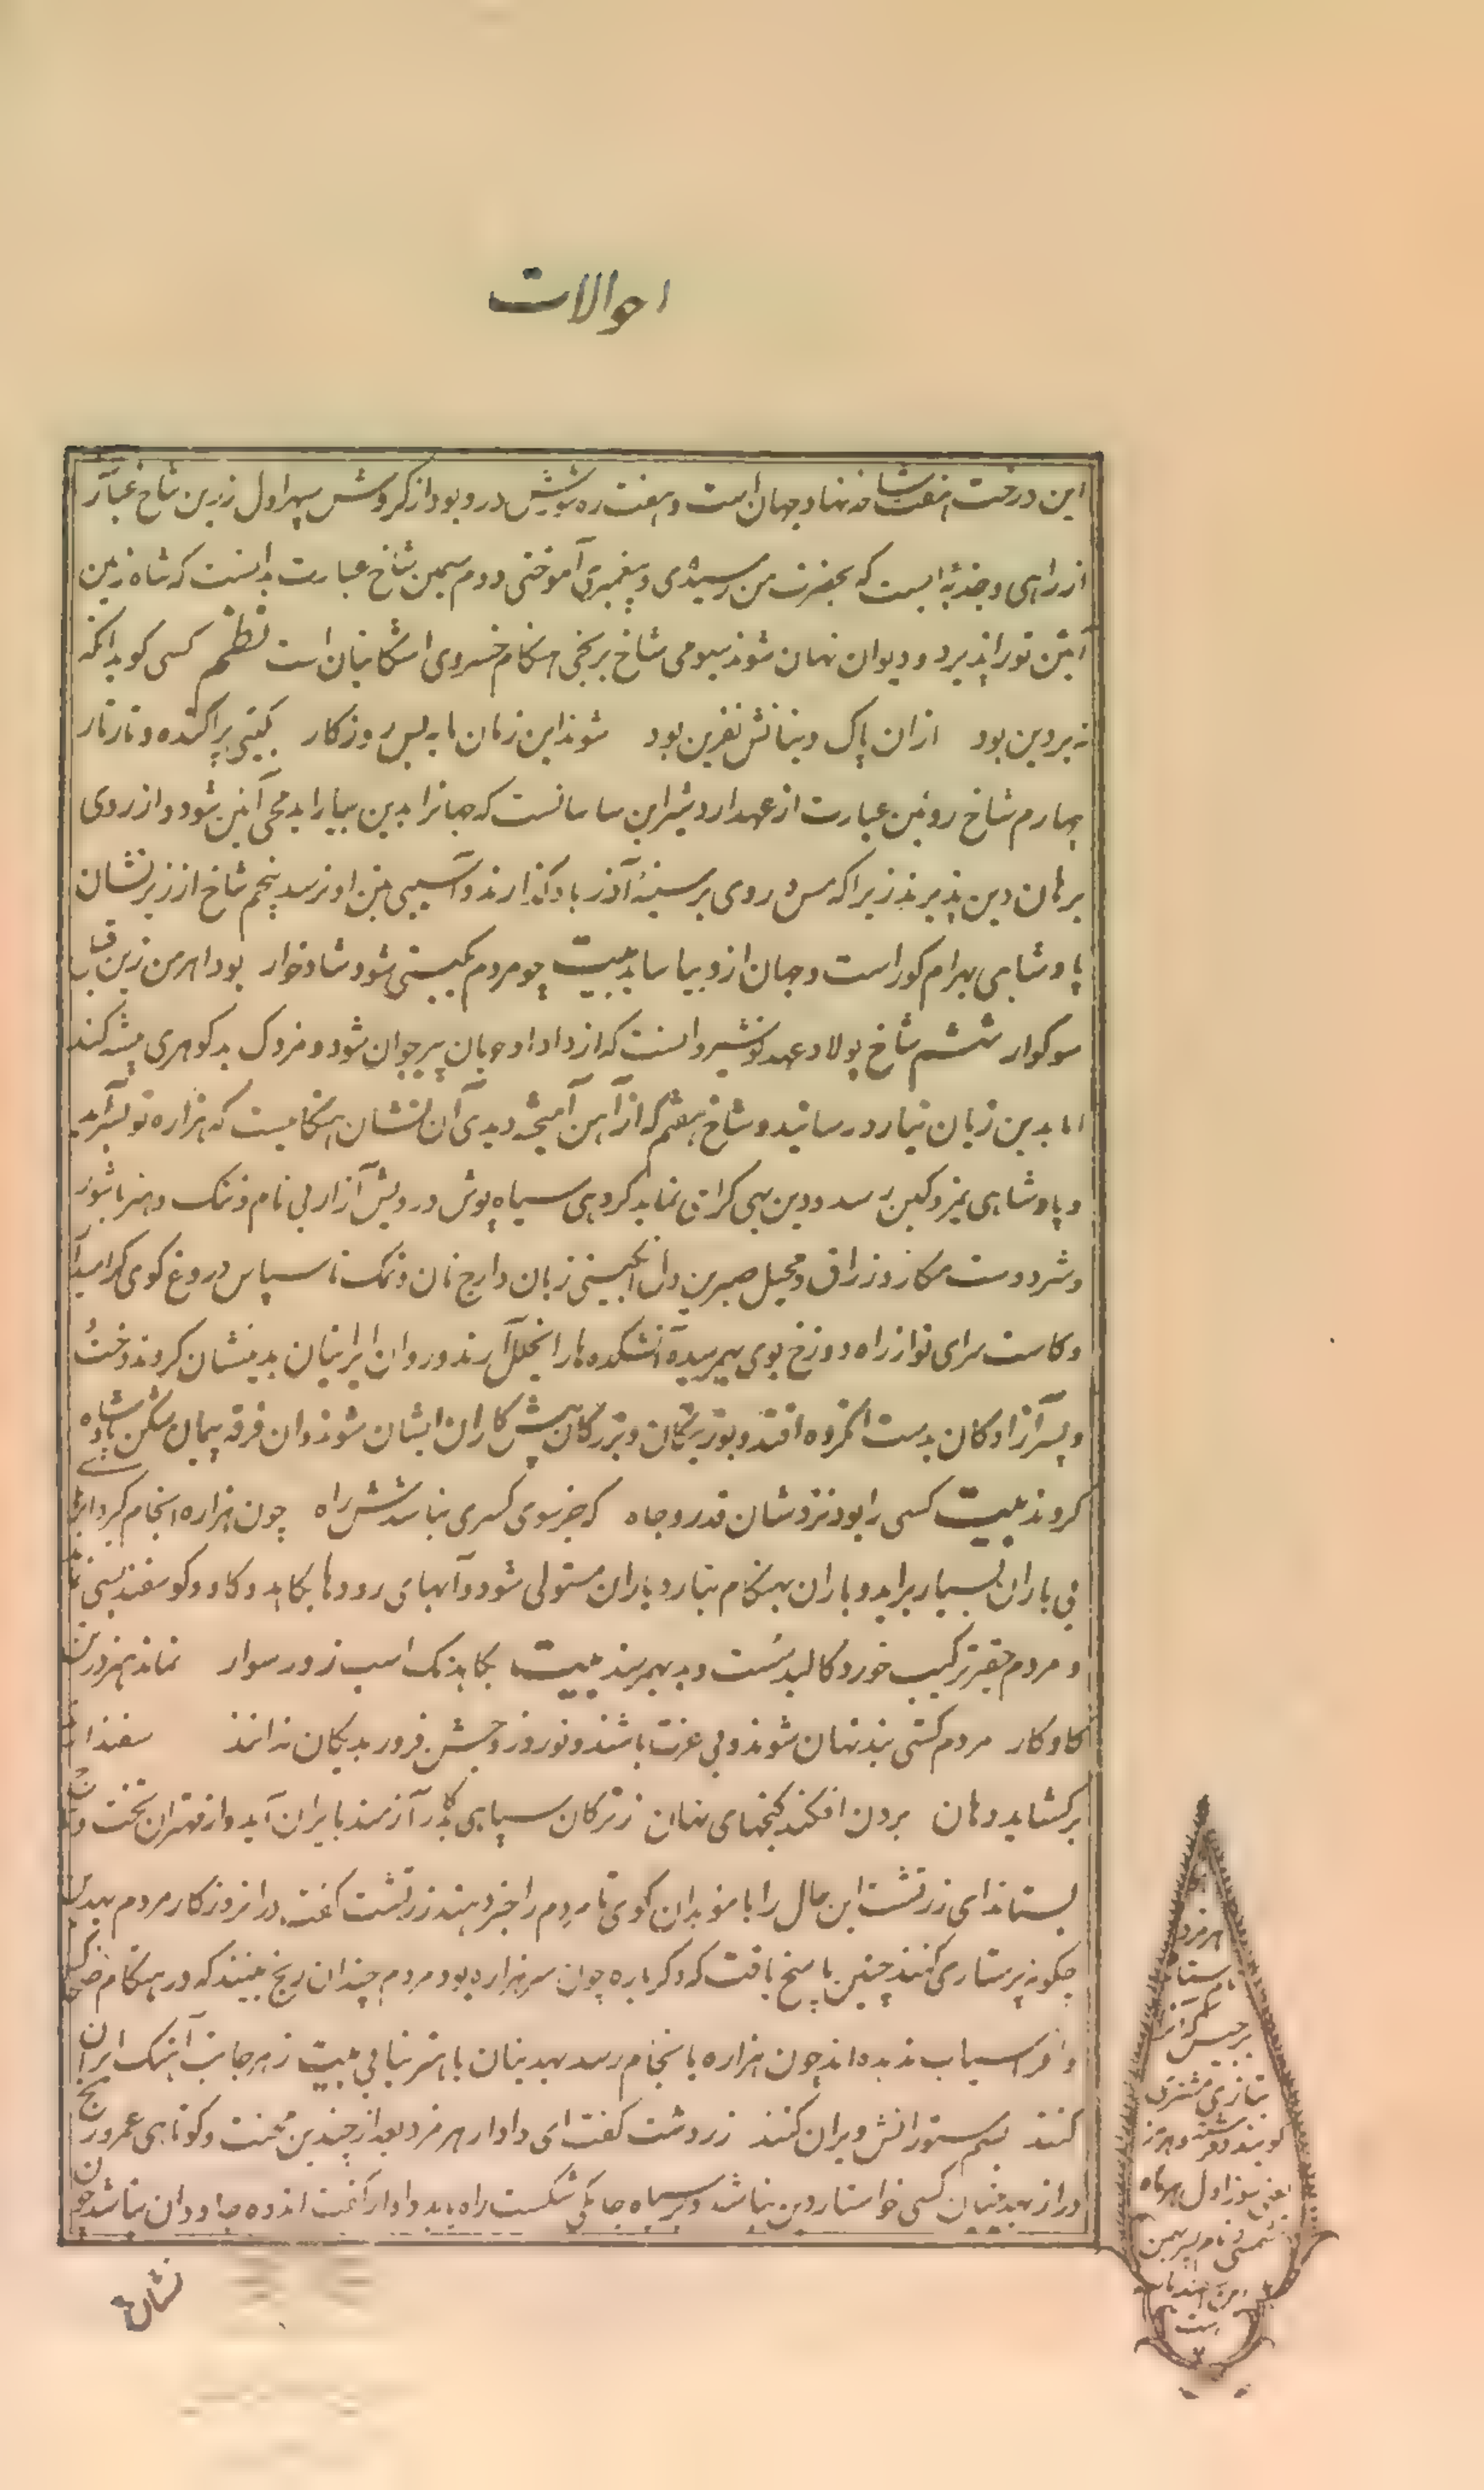 احوالات
این درخت هفت شاخه نهاد جهان است و هفت ره شورش درو بود از گردش سپهر اول زرین شاخ عبارت
از راهی و جذبه ایست که بحضرت من رسیدی و پیغمبری آموختی دوم سیمین شاخ عبارت بدانست که شاه زمین
آیین تو را پذیرد و دیوان نهان شوند سیومی شاخ برنجی هنگام خسروی اشکانیان است نظم کسی کو بدانکه
نه بر دین بود ازان پاک دینانش نفرین بود شوند این زمان مایه بس روزکار بگیتی پراکنده و تارتار
چهارم شاخ روئین عبارت از عهد اردشیر ابن ساسانست که جهانرا بدین بیاراید محی آئین شود و از روی
برهان دین پذیرند زیرا که مس و روی بر سینهٔ آذرباد گذارند و آسیبی بتن او نرسد پنجم شاخ ارزیز نشان
پادشاهی بهرام کور است و جهان ازو بیاساید بیت چو مردم بگیتی شود شادخوار بود اهرمن زین
سوکوار ششم شاخ پولاد عهد نوشیروانست که از داد او جهان پیر جوان شود و مزدک بدکوهری پیشه کند
اما بدین زیان نیارد رسانید و شاخ هفتم که از آهن آمیخته دیدی آن نشان هنگامیست که هزاره تو بسرآید
و پادشاهی بمزد کین رسد و دین بهی گرانی نماید کروهی سیاه پوش درویش آزار بی نام و ننک و هنر با شور
و شر دوست مکار و زراق و محیل صبرین دل انگبینی زبان دارج نان و نمک ناسپاس دروغ کوی
و کاست سرای نواز راه دوزخ بوی بهم رسیده آتشکده ها را بخلل آرند و روان ایرانیان بدیشان کروند دخت
و پسر آزادکان بدست انگروه افتد و پور نیکان و بزرکان پیش کاران ایشان شوند و آن فرقه پیمان شکن پادشاه
کروند بیت کسی را بود نزدشان قدر و جاه که جز سوی کسری نباشدش راه چون هزاره انجام کردد ابرها
بی باران بسیار براید و باران بهنکام نبارد و باران مستولی شود و آبهای رودها بکاهد و کاو و کوسفند بسی
و مردم حقیر ترکیب خورد کالبد سست و بد بهم رسند بیت بکاهد تک اسب زور سوار نماند هنر در
کاو کار مردم کشتی بند نهان شوند و بی عزت باشند و نوروز و جشن فروردیکان ندانند سفندار
برکشاید دهان بردن افکند کنجهای نهان ز ترکان سپاهی آزمند بایران آید و از مهتران تخت و
بستانند ای زرتشت این حال را با موبدان کوی تا مردم را خبر دهند زرتشت گفت در انروزکار مردم بهدین
چکونه پرستاری کنند چنین پاسخ یافت که دکرباره چون سر هزاره بود مردم چندان رنج بینند که در هنکام ضحاک
و افراسیاب ندیده اند چون هزاره بانجام رسد بهدینان با هنر نیابی بیت ز هر جانب آهنک ایران
کنند بسم ستورانش ویران کنند زردشت گفت ای دادار هرمزد بعد از چندین محنت و کوتاهی عمر و رنج
دراز بهدینان کسی خواستار دین نباشد و بر سیاه جامگی شکست راه یابد دادار گفت اندوه جاودان نباشد چون
نشان
هرمزد
نام ستاره
برجیس که آنرا
بتازی مشتری
گویند
روز اول هر ماه
شمسی و نام پسر بهمن
بن اسفندیار
است
۲